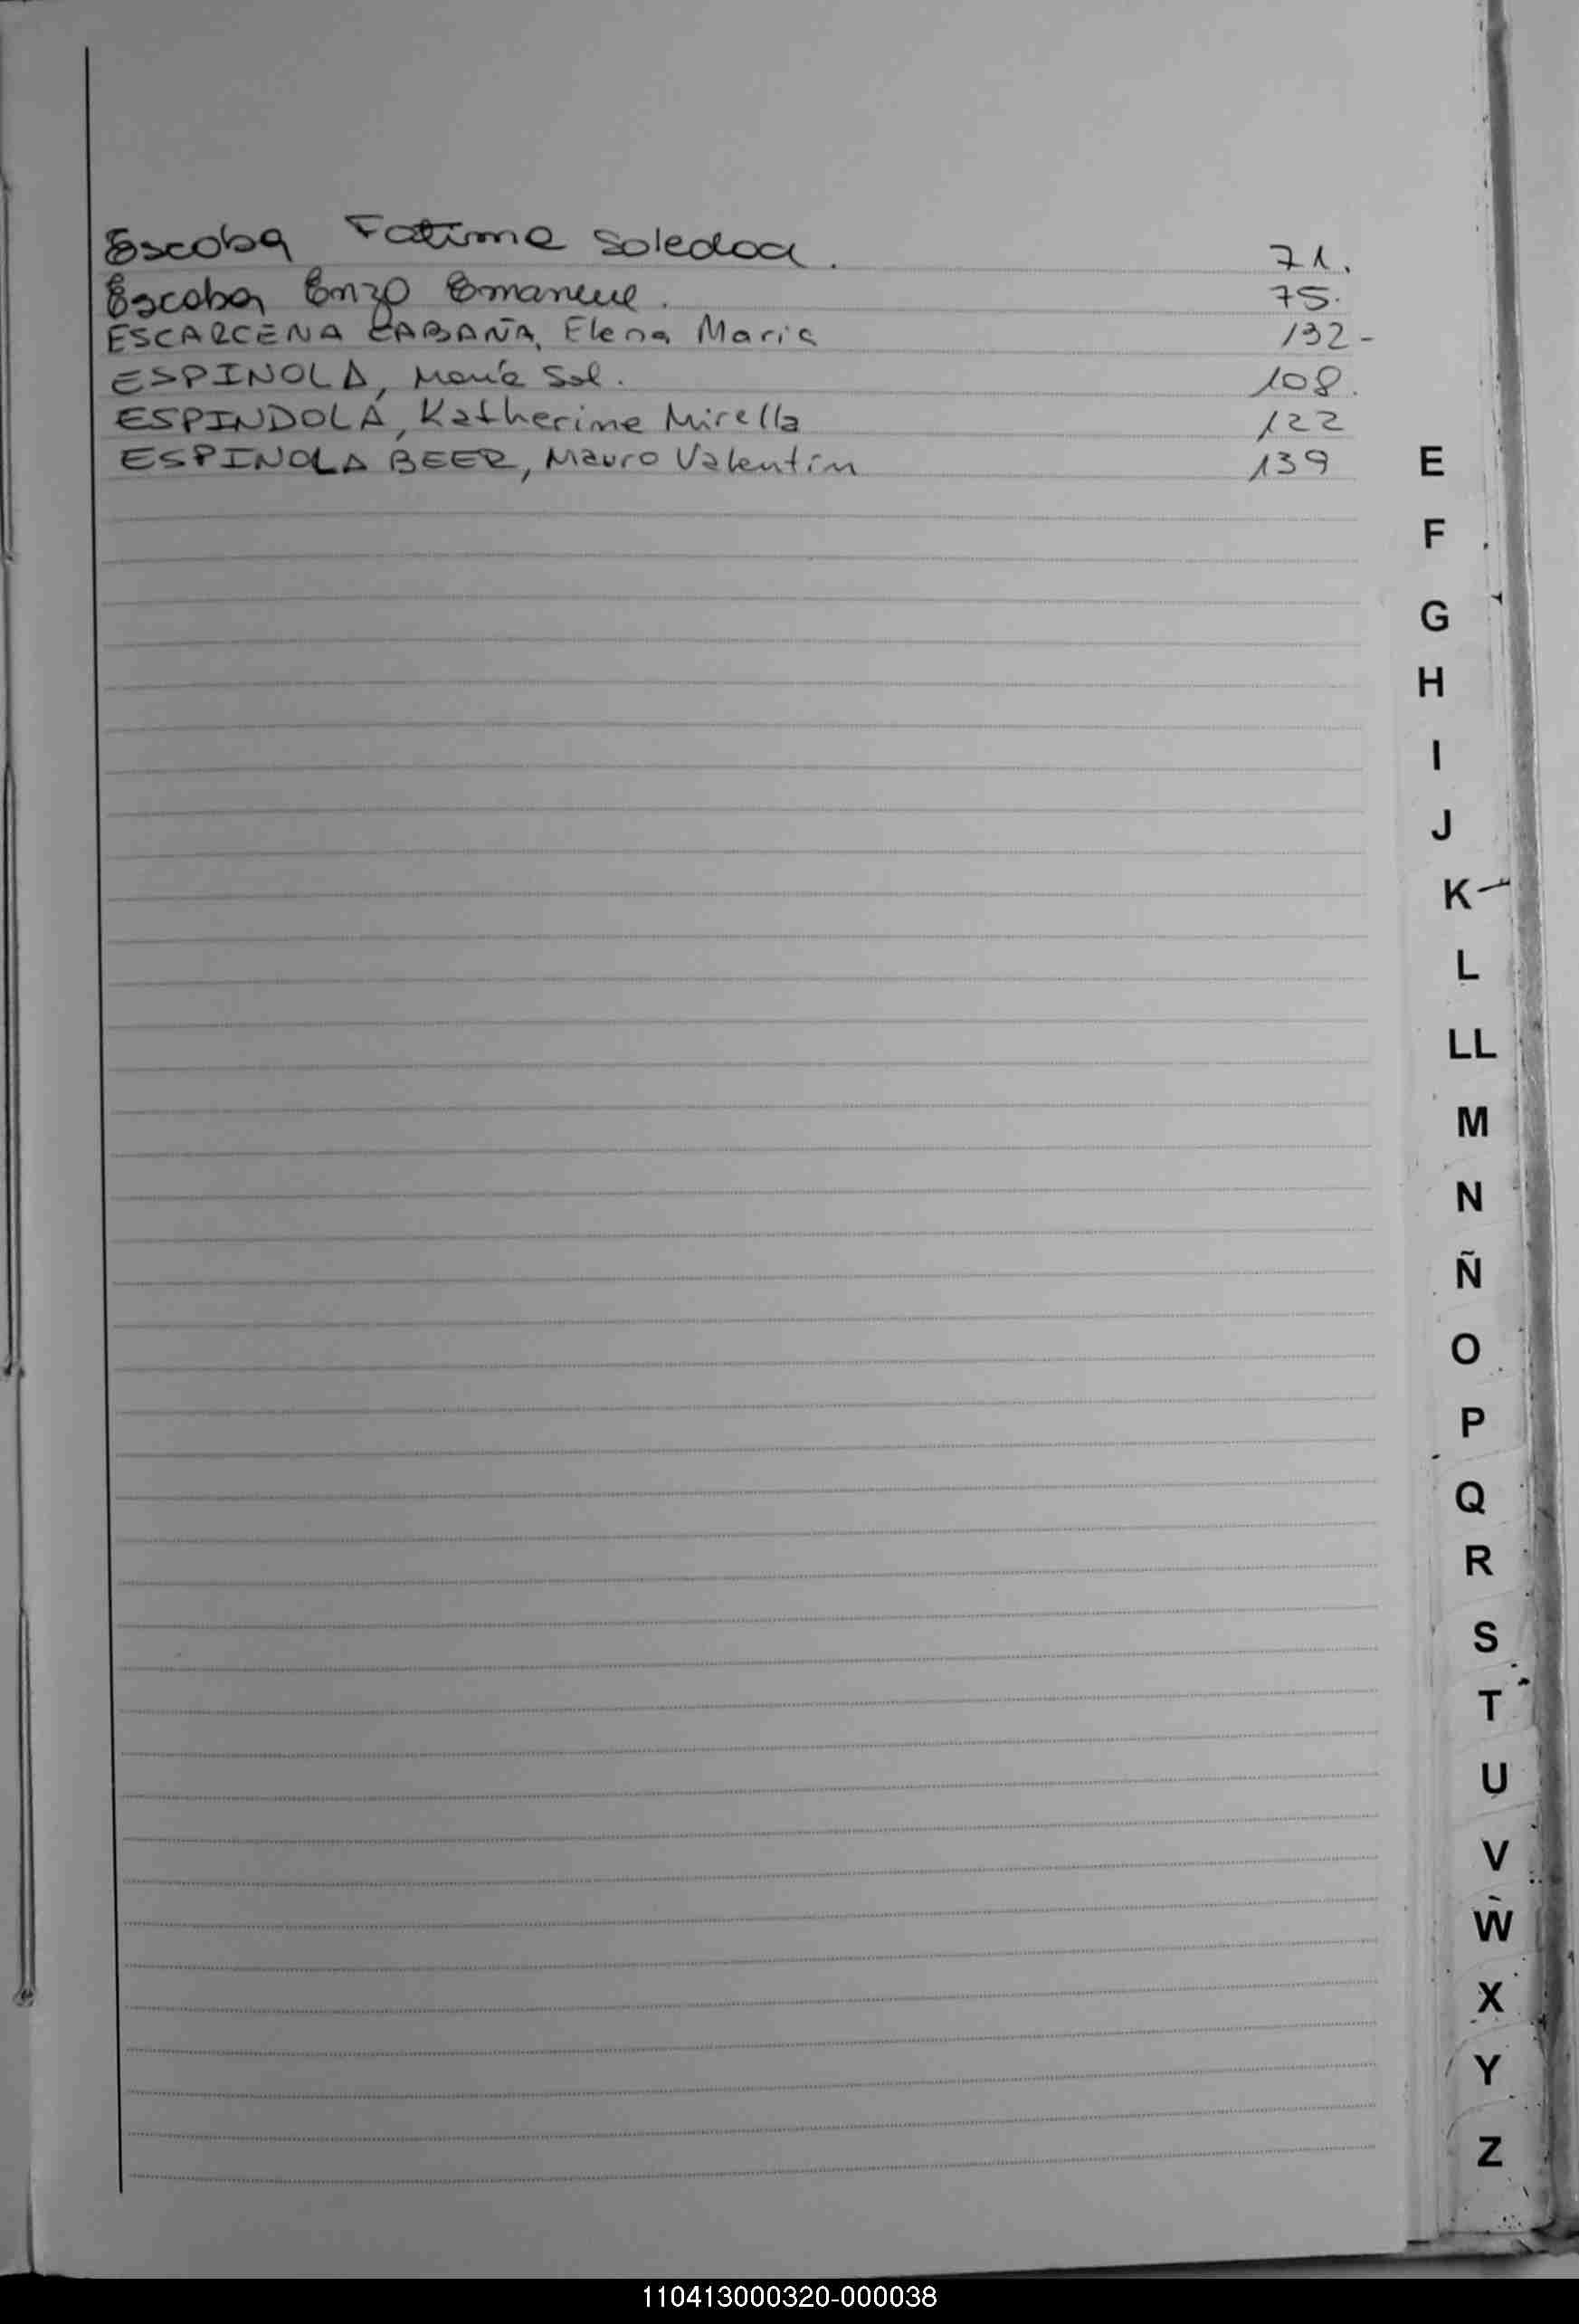 Escobar Fatima Soledad. 71.
Escobar Enzo Emanuel. 75.
ESCARCENA CABAÑA, Elena Maria 132-
ESPINOLA, María Sol. 108.
ESPINDOLA, Katherine Mirella 122
ESPINOLA BEER, Mauro Valentín 139
E
F
G
H
I
J
K
L
LL
M
N
Ñ
O
P
Q
R
S
T
U
V
W
X
Y
Z
110413000320-000038